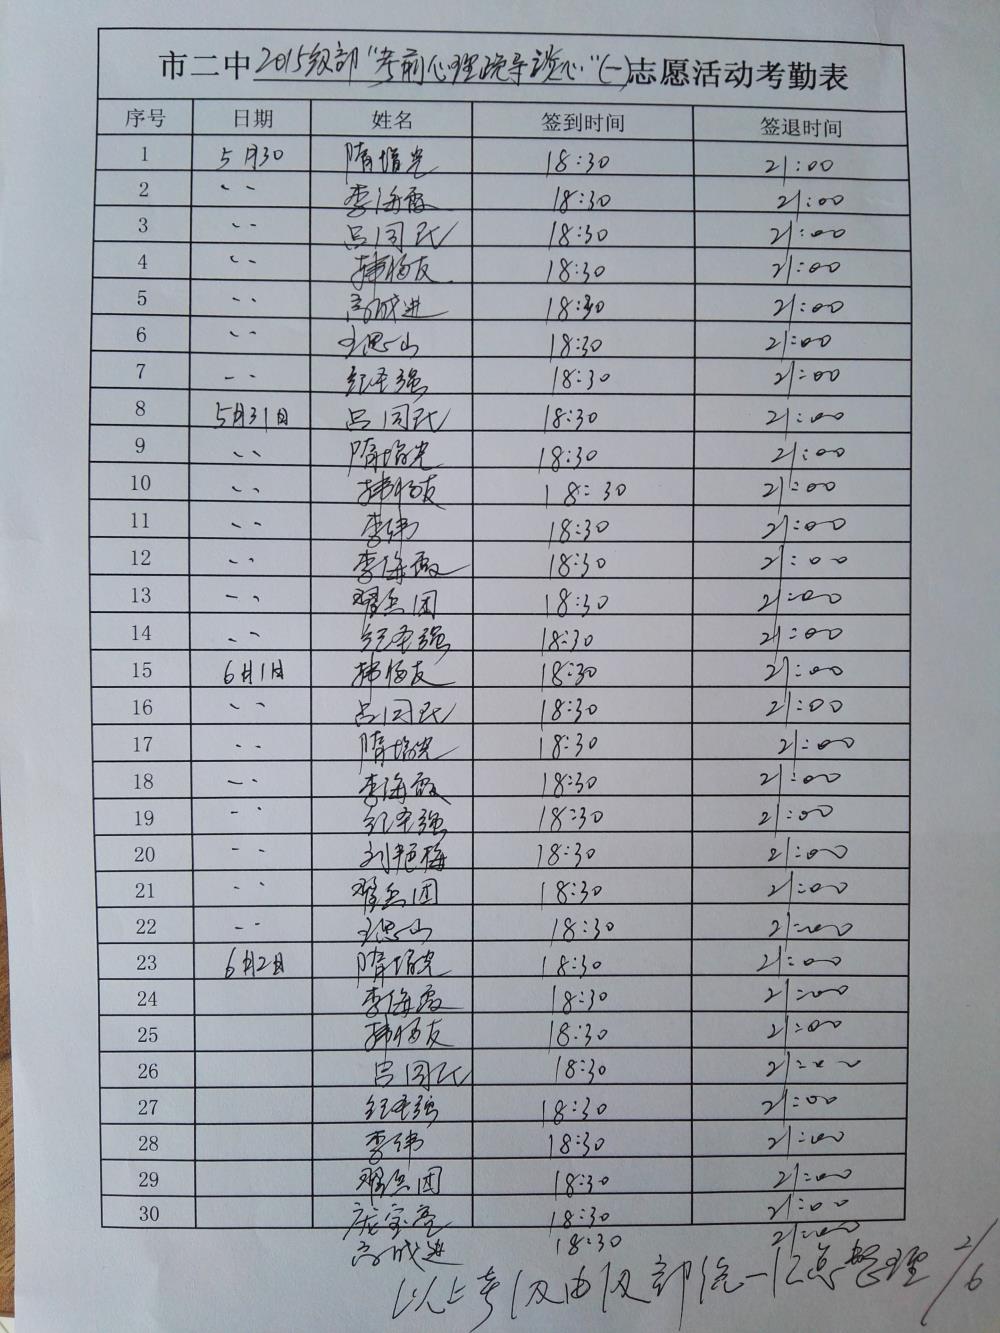 市二中2015级部“考前心理疏导谈心”(一)志愿活动考勤表
序号 日期 姓名 签到时间 签退时间
1 5月30 隋培光 18:30 21:00
2 〃 李海霞 18:30 21:00
3 〃 吕同民 18:30 21:00
4 〃 韩炳友 18:30 21:00
5 〃 高成进 18:30 21:00
6 〃 王思山 18:30 21:00
7 〃 纪圣强 18:30 21:00
8 5月31日 吕同民 18:30 21:00
9 〃 隋培光 18:30 21:00
10 〃 韩炳友 18:30 21:00
11 〃 李伟 18:30 21:00
12 〃 李海霞 18:30 21:00
13 〃 18:30 21:00
14 〃 纪圣强 18:30 21:00
15 6月1日 韩炳友 18:30 21:00
16 〃 吕同民 18:30 21:00
17 〃 隋培光 18:30 21:00
18 〃 李海霞 18:30 21:00
19 〃 纪圣强 18:30 21:00
20 〃 刘艳梅 18:30 21:00
21 〃 18:30 21:00
22 〃 王思山 18:30 21:00
23 6月2日 隋培光 18:30 21:00
24 李海霞 18:30 21:00
25 韩炳友 18:30 21:00
26 吕同民 18:30 21:00
27 纪圣强 18:30 21:00
28 李伟 18:30 21:00
29 18:30 21:00
30 庞宝亮 18:30 21:00
高成进 18:30 21:00
以上考级由级部统一汇总整理 2/6